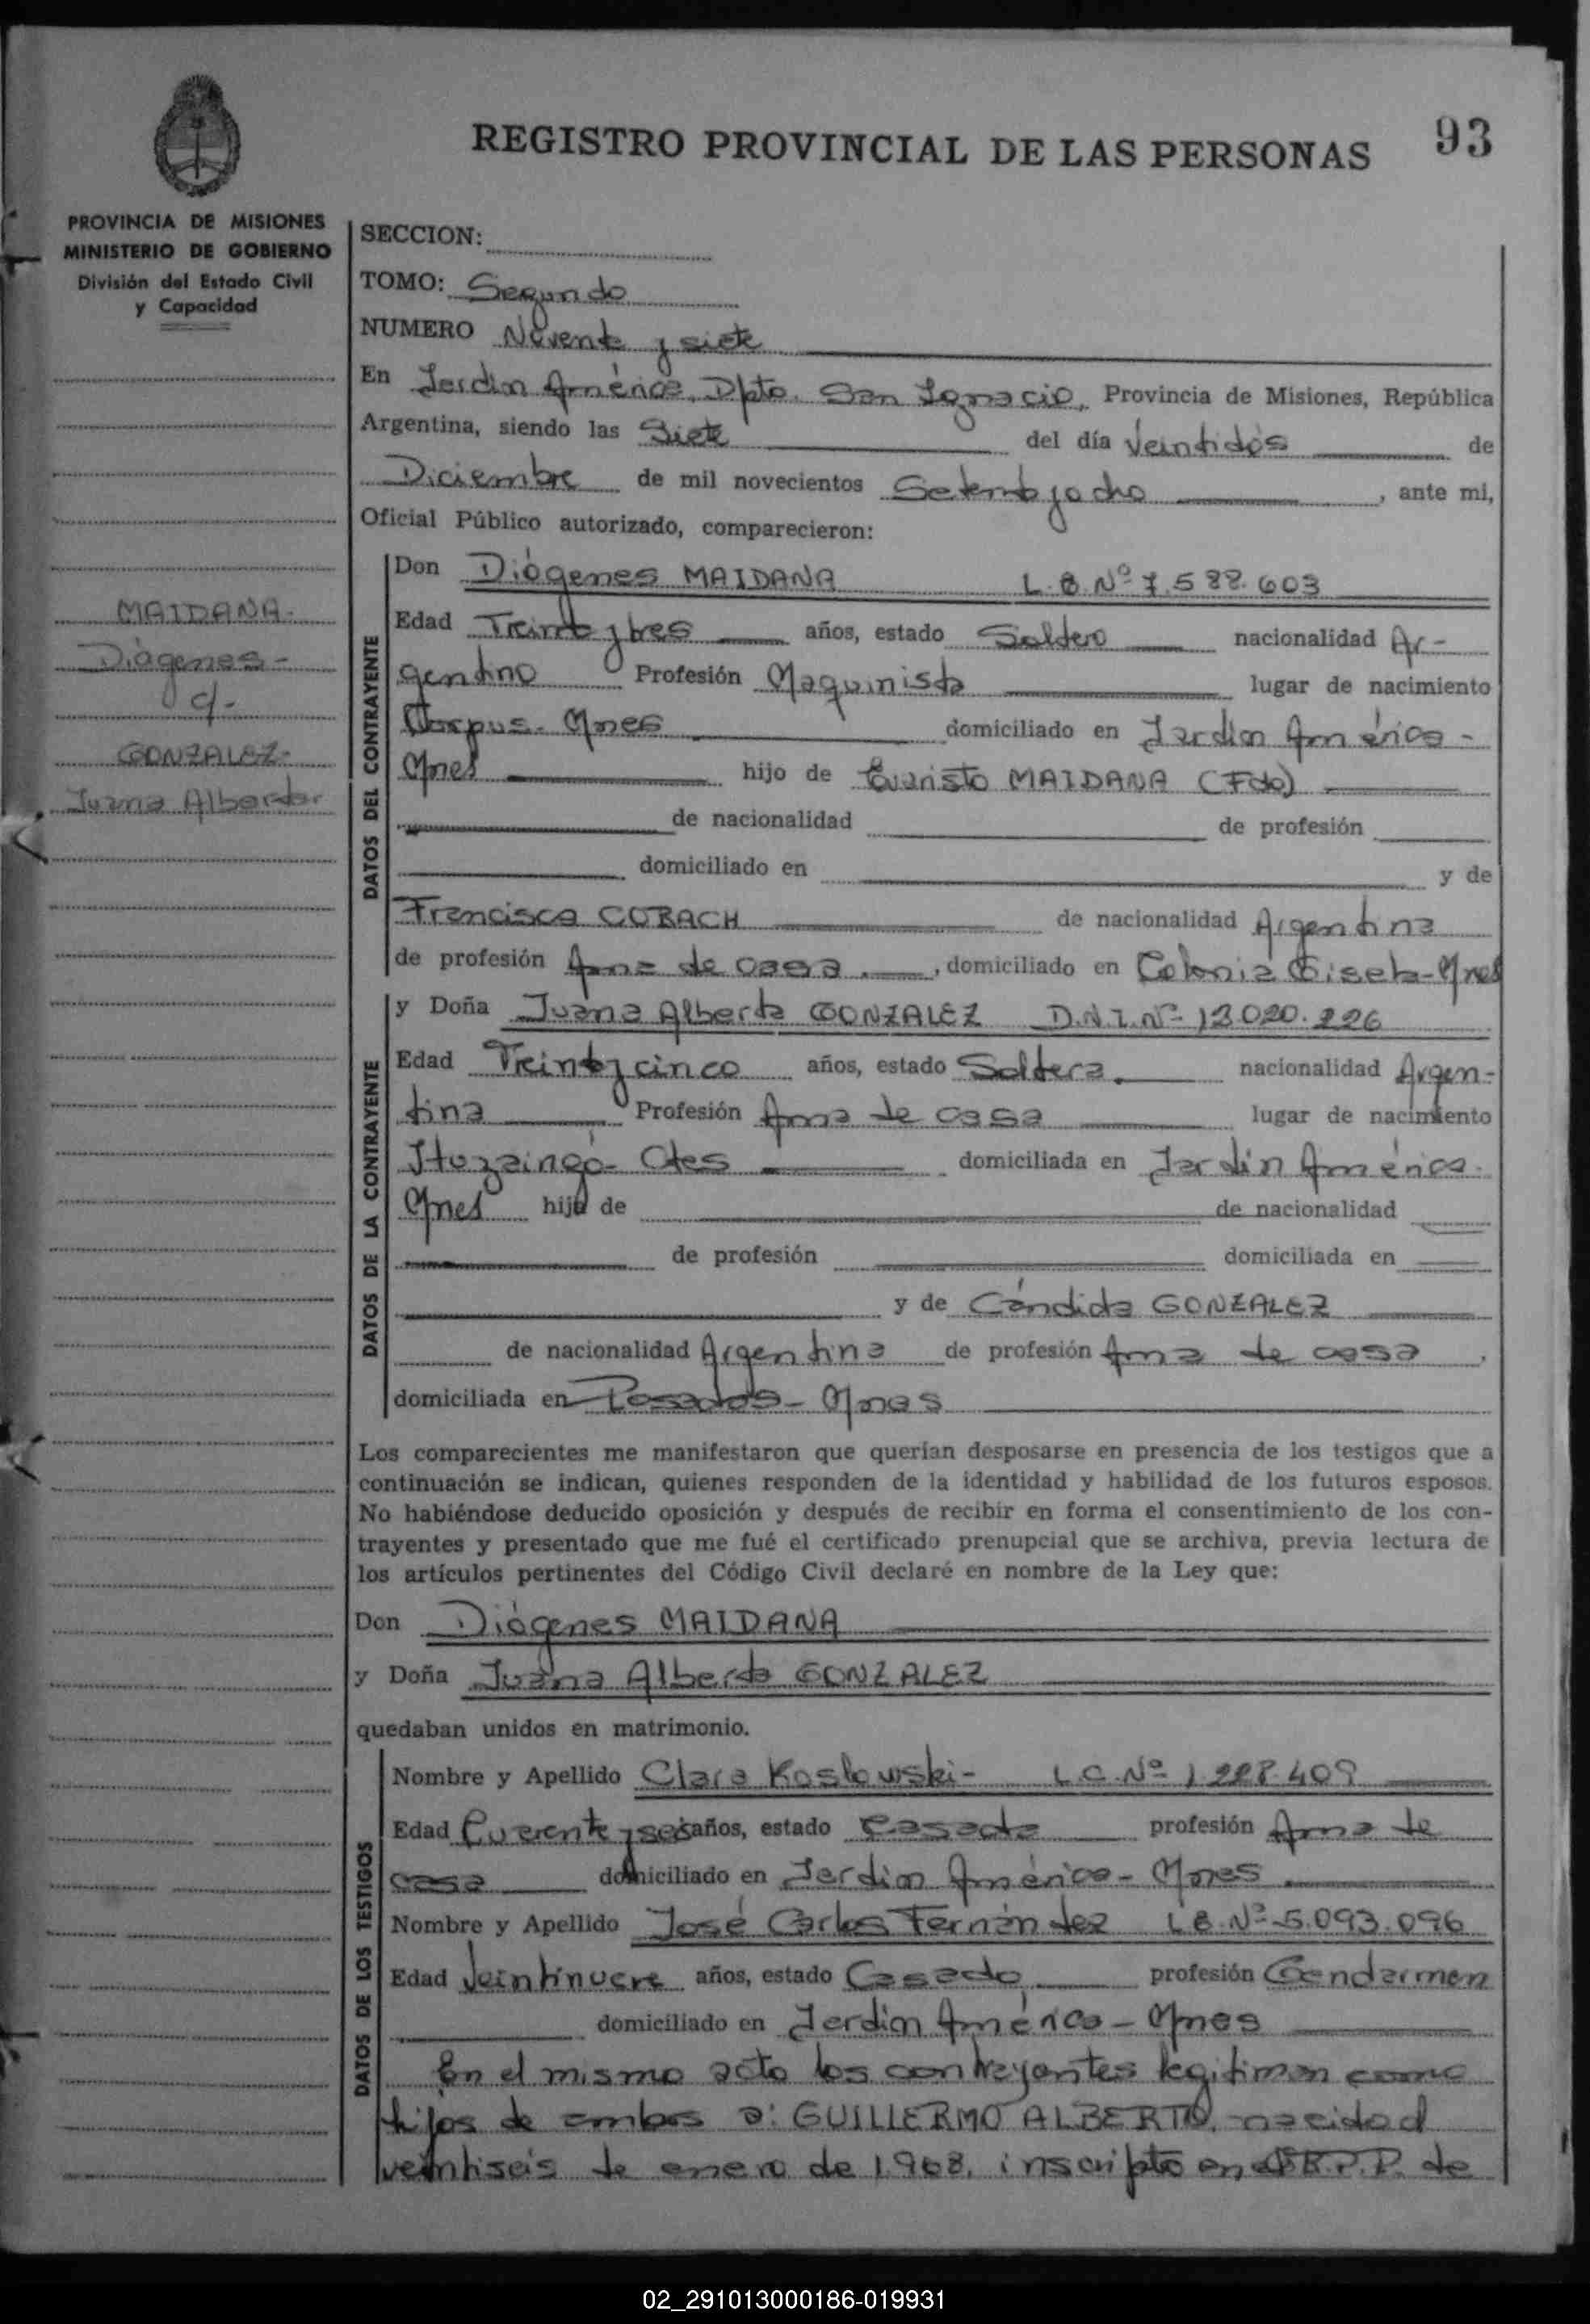 REGISTRO PROVINCIAL DE LAS PERSONAS 93
PROVINCIA DE MISIONES
MINISTERIO DE GOBIERNO
División del Estado Civil
y Capacidad
MAIDANA-
Diógenes-
c/-
GONZALEZ-
Juana Alberta-
SECCION:
TOMO: Segundo
NUMERO Noventa y siete
En Jardín América, Dpto. San Ignacio, Provincia de Misiones, República
Argentina, siendo las Siete del día Veintidós de
Diciembre de mil novecientos Setenta y ocho, ante mi,
Oficial Público autorizado, comparecieron:
DATOS DEL CONTRAYENTE
Don Diógenes MAIDANA L.E.Nº 7.588.603
Edad Treinta y tres años, estado Soltero nacionalidad Ar-
gentino Profesión Maquinista lugar de nacimiento
Corpus- Mnes domiciliado en Jardín América-
Mnes hijo de Evaristo MAIDANA (Fdo)
de nacionalidad de profesión
domiciliado en y de
Francisca CORACH de nacionalidad Argentina
de profesión Ama de casa, domiciliado en Colonia Giseta-Mnes
DATOS DE LA CONTRAYENTE
y Doña Juana Alberta GONZALEZ D.N.I.Nº 13.020.226
Edad Treinta y cinco años, estado Soltera nacionalidad Argen-
tina Profesión Ama de casa lugar de nacimiento
Ituzaingó- Ctes domiciliada en Jardín América-
Mnes hija de de nacionalidad
de profesión domiciliada en
y de Cándida GONZALEZ
de nacionalidad Argentina de profesión Ama de casa,
domiciliada en Posadas- Mnes
Los comparecientes me manifestaron que querían desposarse en presencia de los testigos que a
continuación se indican, quienes responden de la identidad y habilidad de los futuros esposos.
No habiéndose deducido oposición y después de recibir en forma el consentimiento de los con-
trayentes y presentado que me fué el certificado prenupcial que se archiva, previa lectura de
los artículos pertinentes del Código Civil declaré en nombre de la Ley que:
Don Diógenes MAIDANA
y Doña Juana Alberta GONZALEZ
quedaban unidos en matrimonio.
DATOS DE LOS TESTIGOS
Nombre y Apellido Clara Koslowski- L.C.Nº 1.228.409
Edad Cuarenta y seis años, estado Casada profesión Ama de
casa domiciliado en Jardín América- Mnes
Nombre y Apellido José Carlos Fernández L.E.Nº 5.093.096
Edad Veintinueve años, estado Casado profesión Gendarmen
domiciliado en Jardín América- Mnes
En el mismo acto los contrayentes legitiman como
hijos de ambos a: GUILLERMO ALBERTO, nacido el
veintiseis de enero de 1.968, inscripto en R.P.P. de
02_291013000186-019931